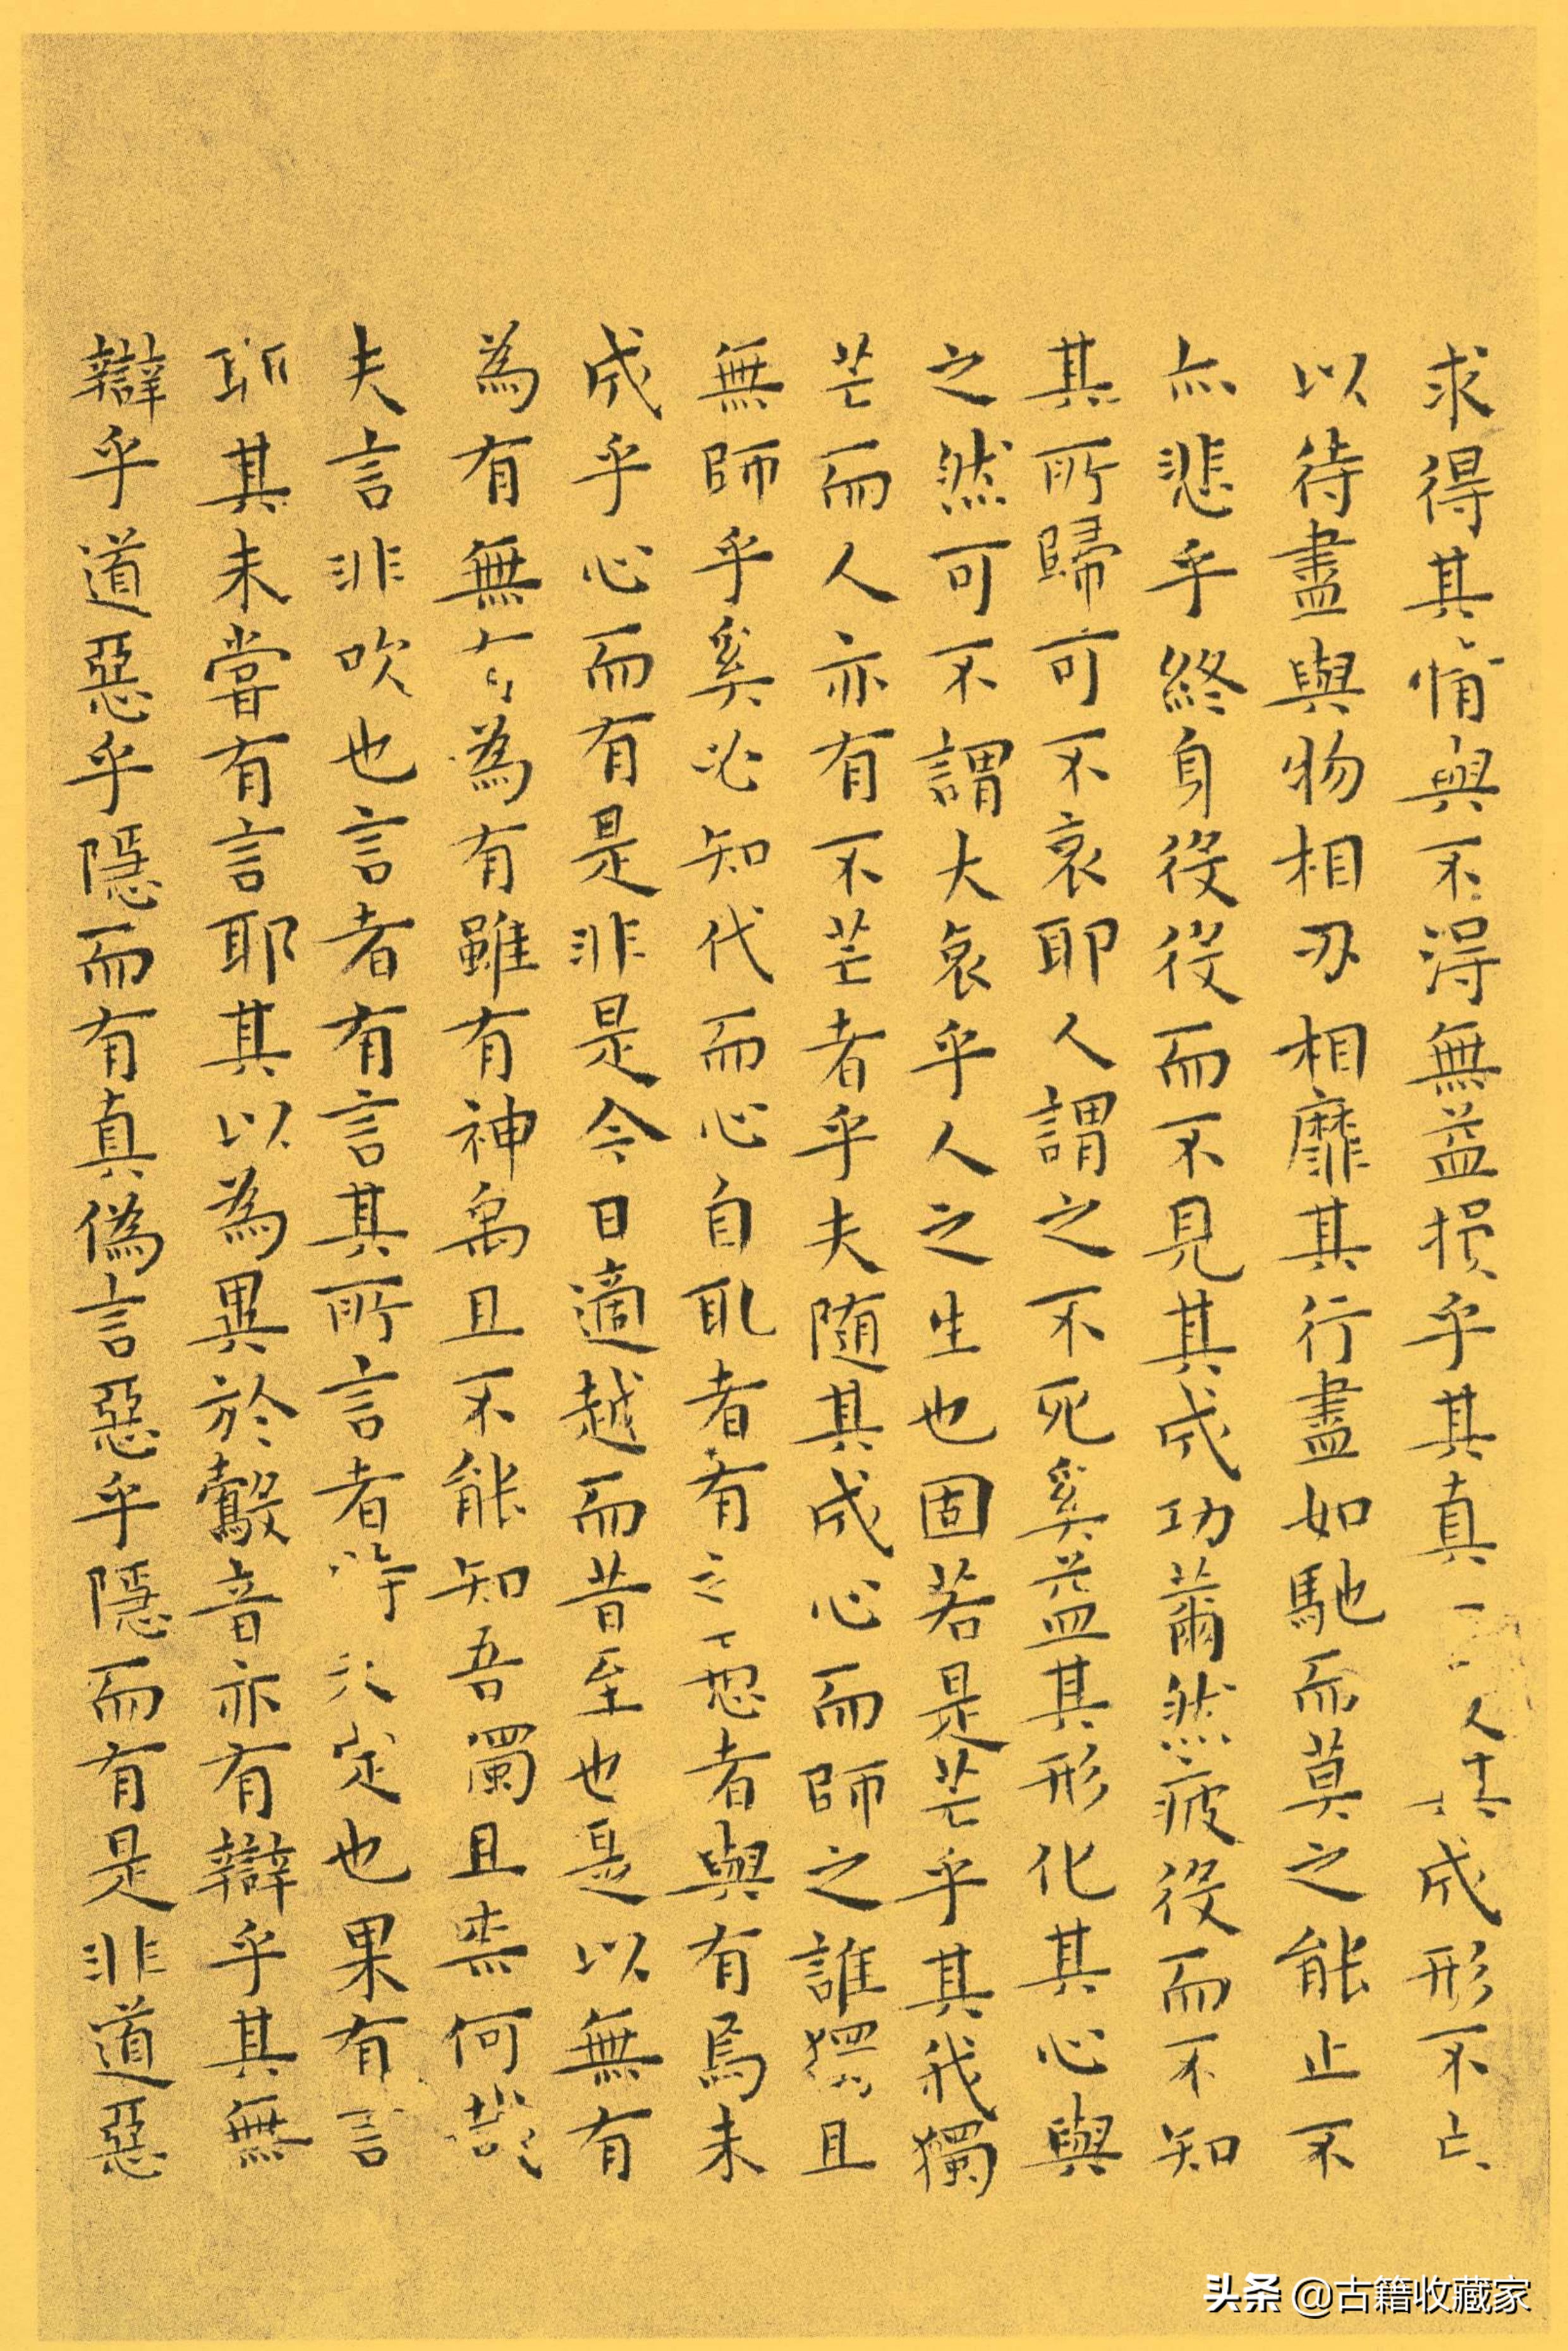 求得其情與不得無益損乎其真一人其成形不亡
以待盡與物相刃相靡其行盡如馳而莫之能止不
亦悲乎終身役役而不見其成功薾然疲役而不知
其所歸可不哀耶人謂之不死奚益其形化其心與
之然可不謂大哀乎人之生也固若是芒乎其我獨
芒而人亦有不芒者乎夫随其成心而師之誰獨且
無師乎奚必知代而心自取者有之愚者與有焉未
成乎心而有是非是今日適越而昔至也是以無有
為有無有為有雖有神禹且不能知吾獨且柰何哉
夫言非吹也言者有言其所言者特未定也果有言
耶其未嘗有言耶其以為異於鷇音亦有辯乎其無
辯乎道惡乎隱而有真偽言惡乎隱而有是非道惡
头条 @古籍收藏家